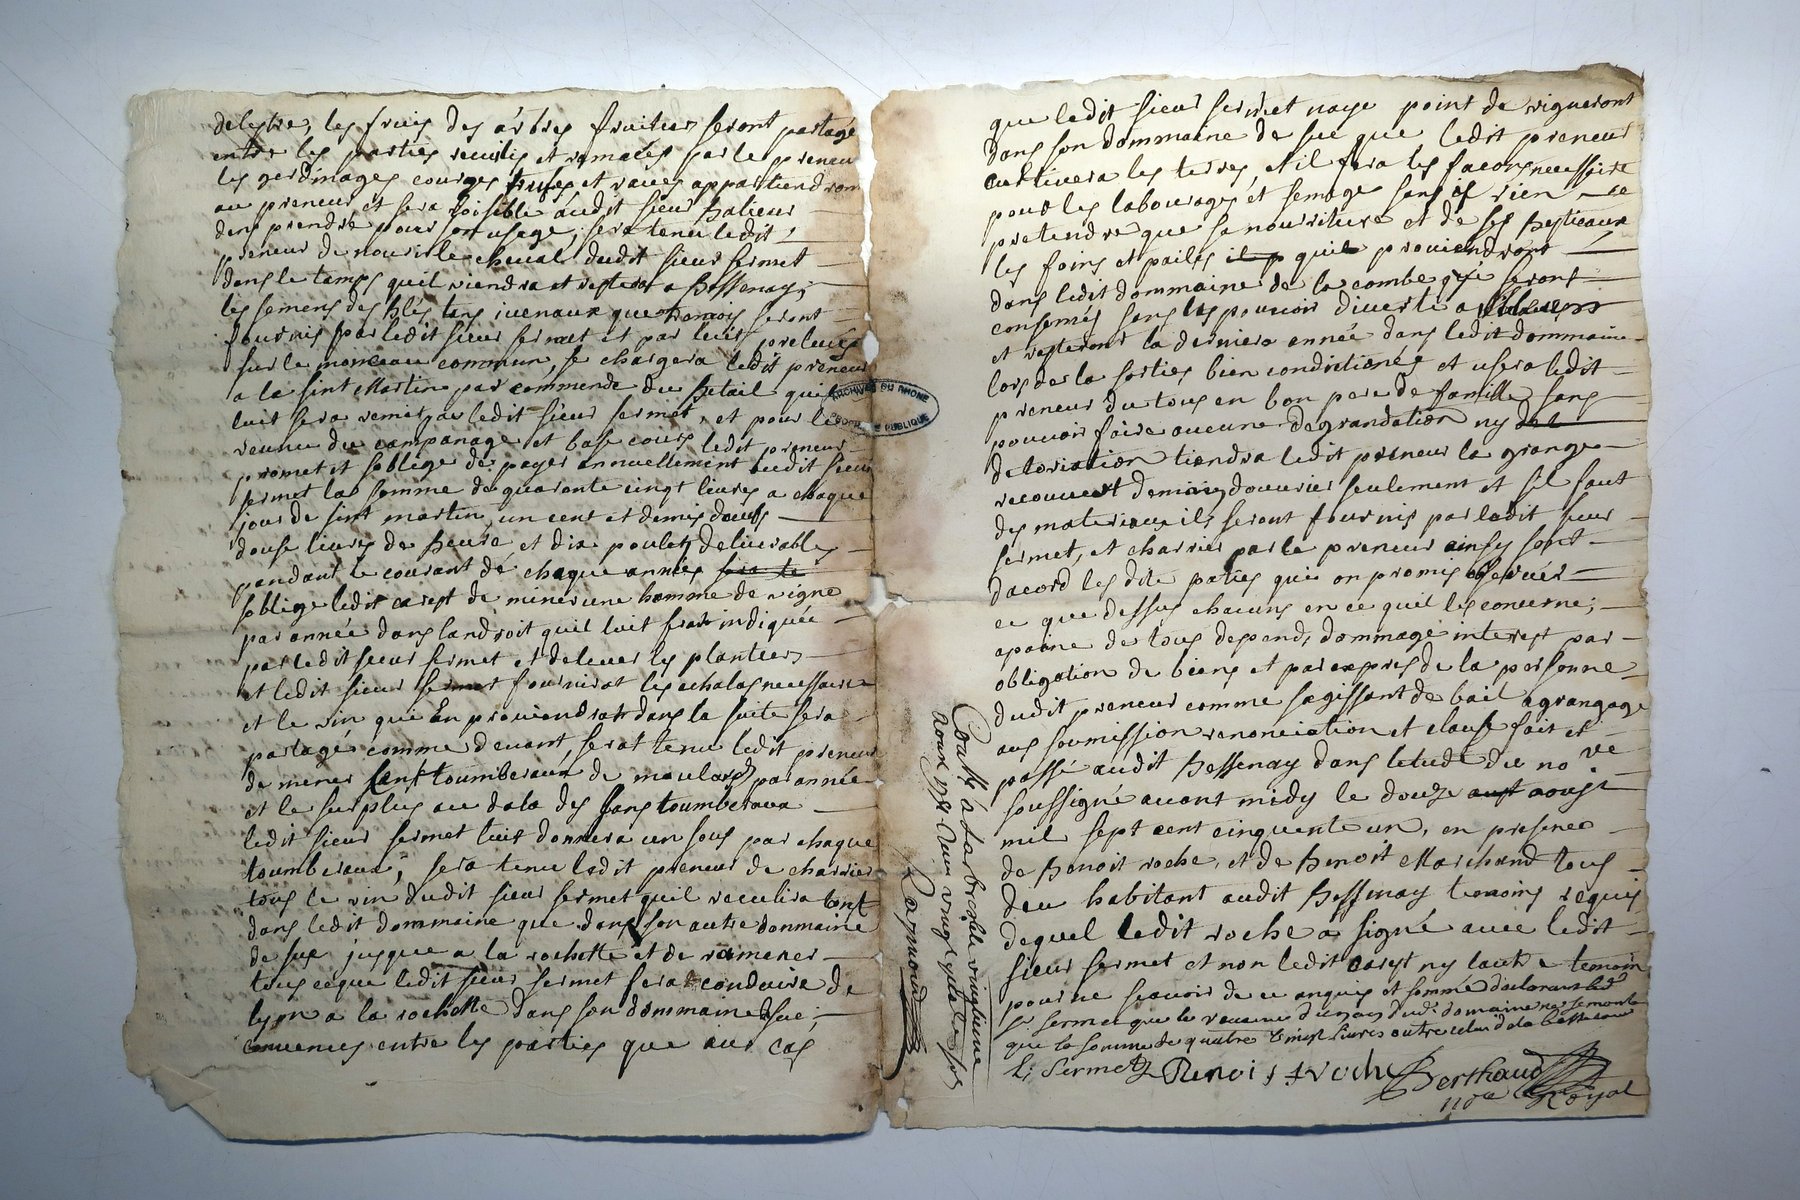 delestre, les fruis des arbres fruitier seront partagé
entre les parties recuilis et ramacés par le preneur
les gerdinages courges trufes et raves appartiendron
au preneur et sera loisible audit sieur balieur
dens prendre pour son usage, sera tenu ledit
preneur de nourir le cheval dudit sieur fermet
dans le temps quil viendra et restera a bessenay,
les semens des bles tans ivernaux que tramois seront
fournis par ledit sieur fermet et par leur prelevés
sur le monceau commun, se chargera ledit preneur
a la sint Martin par commende du betail qui
luit sera remet par ledit sieur fermet, et pour le
revenu du campanage et base cour ledit preneur
promet et soblige de payer annuellement audit sieur
fermet la somme de quarante cinqt livres a chaque
jour de sint martin, un cent et demis doeufs
douse livres de beure et dix poulets delivrables
pendant le courant de chaque année sera te
soblige ledit carept de miner une homme de vigne
par année dans landroit quil luit serat indiquée
par ledit sieur fermet et delever les plantiers
et ledit sieur fermet fournirat les echalas necessaire
et le vin qui en proviendrat dans la suite sera
partagé comme devant, serat tenu ledit preneur
de mener sans toumberaux de moulards par année
et le surplus au dela des sans toumberaux
ledit sieur fermet luit donnera un sous par chaque
toumberaux, sera tenu ledit preneur de charrier
tous le vin dudit sieur fermet quil reculira tant
dans ledit dommaine que dans son autre dommaine
de sue jusque a la rochette et de ramener
tous ceque ledit sieur fermet fera conduire de
lyon a la rochette dans son dommaine de sue,
convenus entre les parties que aux cas
que ledit sieur fermet naye point de vigneront
dans son dommaine de sue que ledit preneur
cultivera les terres, et il fera les facons necessaire
pour les labourages et semage sans rien
pretendre que sa nourriture et de ses bestieaux
les foins et pailes il p quil proviendront
dans ledit dommaine de la combe qui seront
consomés sans les pouvoir diverte alieurs
et resteront la derniere année dans ledit dommaine
lors de la sorties bien conditionés et usera ledit
preneur du tous en bon pere de famille sans
pouvoir faire aucune degrandation ny del
deteriation tiendra ledit preneur la grange
recouvert demain douvrier seulement et sil faut
des materiaux ils seront fournis par ledit sieur
fermet, et charrier par le preneur ainsy sont
dacord les dite paties qui on promis observer
ce que dessus chacuns en ce quil les concerne,
apaine de tous depend, dommage interest par
obligation de biens et par expres de la personne
dudit preneur comme sagissant de bail agrangage
aus soumission renonciation et clause fait et
passé audit bessenay dans letude du no re
soussigné avant midy le douze aust aoust
mil sept cent cinquente un, en presence
de Benoit roche, et de Benoit Marchand tous
deu habitant audit bessenay temoins requis
dequel ledit roche a signé avec ledit
sieur fermet et non ledit carept ny lautre temoin
pour ne scavoir de ce enquis et sommé declarant led
sr fermet que le revenu dudit domaine ne se monte
que la somme de quatre vingt livres outre celui de la bassecour
fermet Benoist roche Berthaud
nore Royal
Conlle à Larbresle vingtune
aoust 1751 Reçu
Raymond
ARCHIVES DU RHONE
PROPRIÉTÉ PUBLIQUE